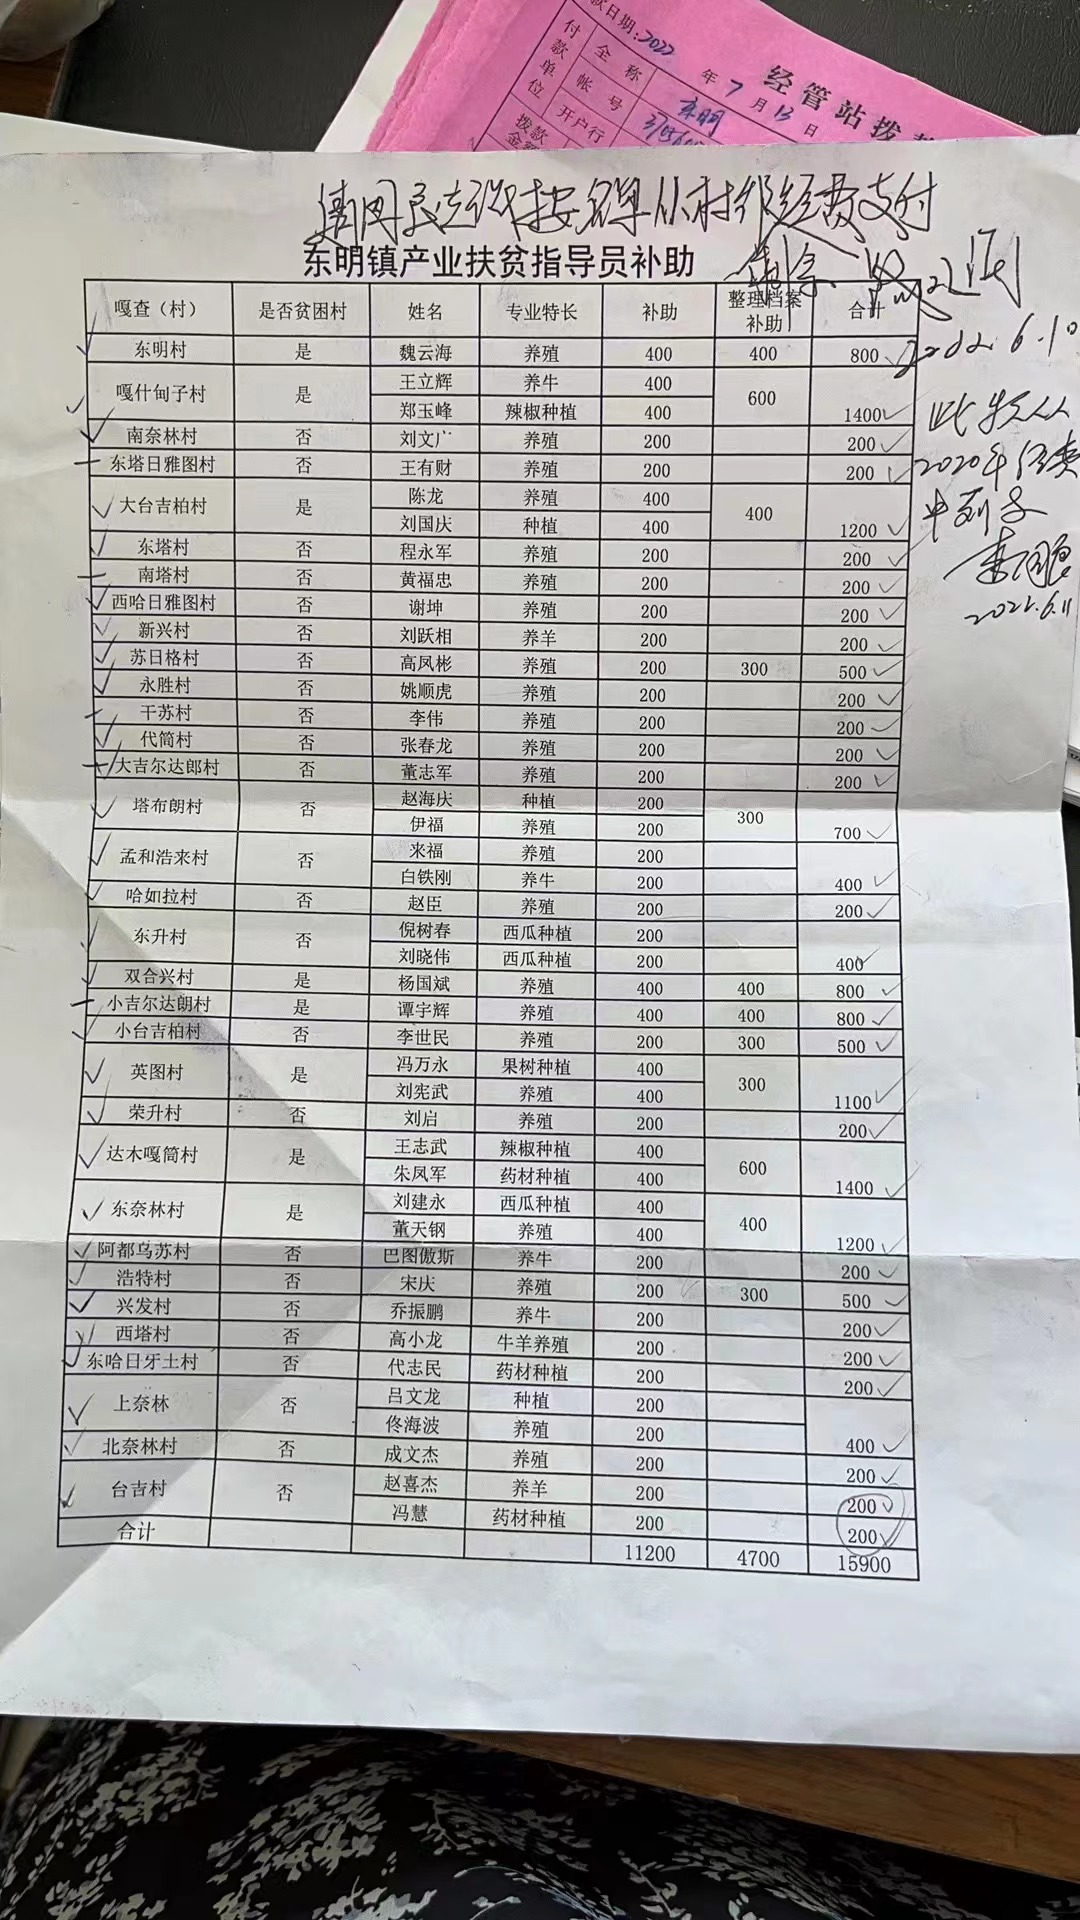 款日期:2022年7月13日
经管站拨
付款单位
全称
东明
帐号
开户行
拨款
东明镇产业扶贫指导员补助
2022.6.10
2020年
2022.6.11
嘎查（村） 是否贫困村 姓名 专业特长 补助 整理档案补助 合计
东明村 是 魏云海 养殖 400 400 800
嘎什甸子村 是 王立辉 养牛 400 600 1400
郑玉峰 辣椒种植 400
南奈林村 否 刘文广 养殖 200 200
东塔日雅图村 否 王有财 养殖 200 200
大台吉柏村 是 陈龙 养殖 400 400 1200
刘国庆 种植 400
东塔村 否 程永军 养殖 200 200
南塔村 否 黄福忠 养殖 200 200
西哈日雅图村 否 谢坤 养殖 200 200
新兴村 否 刘跃相 养羊 200 200
苏日格村 否 高凤彬 养殖 200 300 500
永胜村 否 姚顺虎 养殖 200 200
干苏村 否 李伟 养殖 200 200
代筒村 否 张春龙 养殖 200 200
大吉尔达郎村 否 董志军 养殖 200 200
塔布朗村 否 赵海庆 种植 200 300 700
伊福 养殖 200
孟和浩来村 否 来福 养殖 200 400
白铁刚 养牛 200
哈如拉村 否 赵臣 养殖 200 200
东升村 否 倪树春 西瓜种植 200 400
刘晓伟 西瓜种植 200
双合兴村 是 杨国斌 养殖 400 400 800
小吉尔达朗村 是 谭宇辉 养殖 400 400 800
小台吉柏村 否 李世民 养殖 200 300 500
英图村 是 冯万永 果树种植 400 300 1100
刘宪武 养殖 400
荣升村 否 刘启 养殖 200 200
达木嘎筒村 是 王志武 辣椒种植 400 600 1400
朱凤军 药材种植 400
东奈林村 是 刘建永 西瓜种植 400 400 1200
董天钢 养殖 400
阿都乌苏村 否 巴图傲斯 养牛 200 200
浩特村 否 宋庆 养殖 200 300 500
兴发村 否 乔振鹏 养牛 200 200
西塔村 否 高小龙 牛羊养殖 200 200
东哈日牙土村 否 代志民 药材种植 200 200
上奈林 否 吕文龙 种植 200 400
佟海波 养殖 200
北奈林村 否 成文杰 养殖 200 200
台吉村 否 赵喜杰 养羊 200 200
冯慧 药材种植 200 200
合计 11200 4700 15900